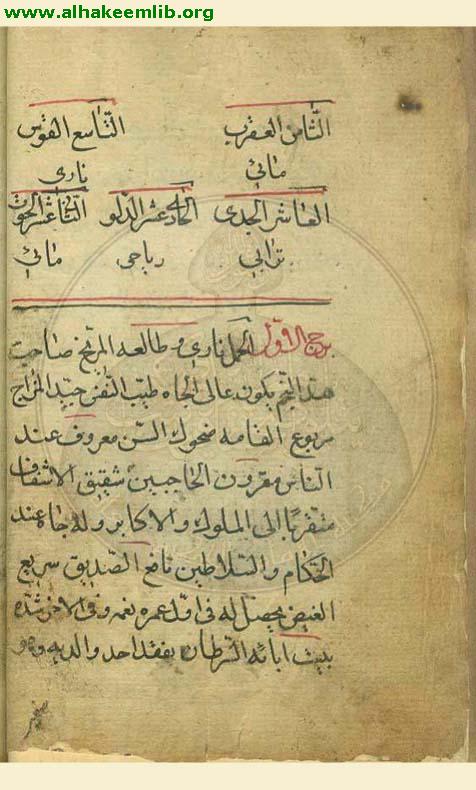 www.alhakeemlib.org
الثامن العقرب التاسع القوس
مائي ناري
العاشر الجدى الحادي عشر الدلو الثاني عشر الحوت
ترابي رياحى مائي
برج الاول الحمل ناري وطالعه المريخ صاحب
هذا النجم يكون عالى الجاه طيب النفس جيد المزاج
مربوع القامه ضحوك السن معروف عند
الناس مقرون الحاجبين شقيق
متقربا الى الملوك والاكابر وله جاه عند
الحكام والسلاطين نافع الصديق سريع
الغيض يحصل له فى اول عمره نغمه وفى الاخر شده
بيت ابائه السرطان يفقد احد والديه وهو